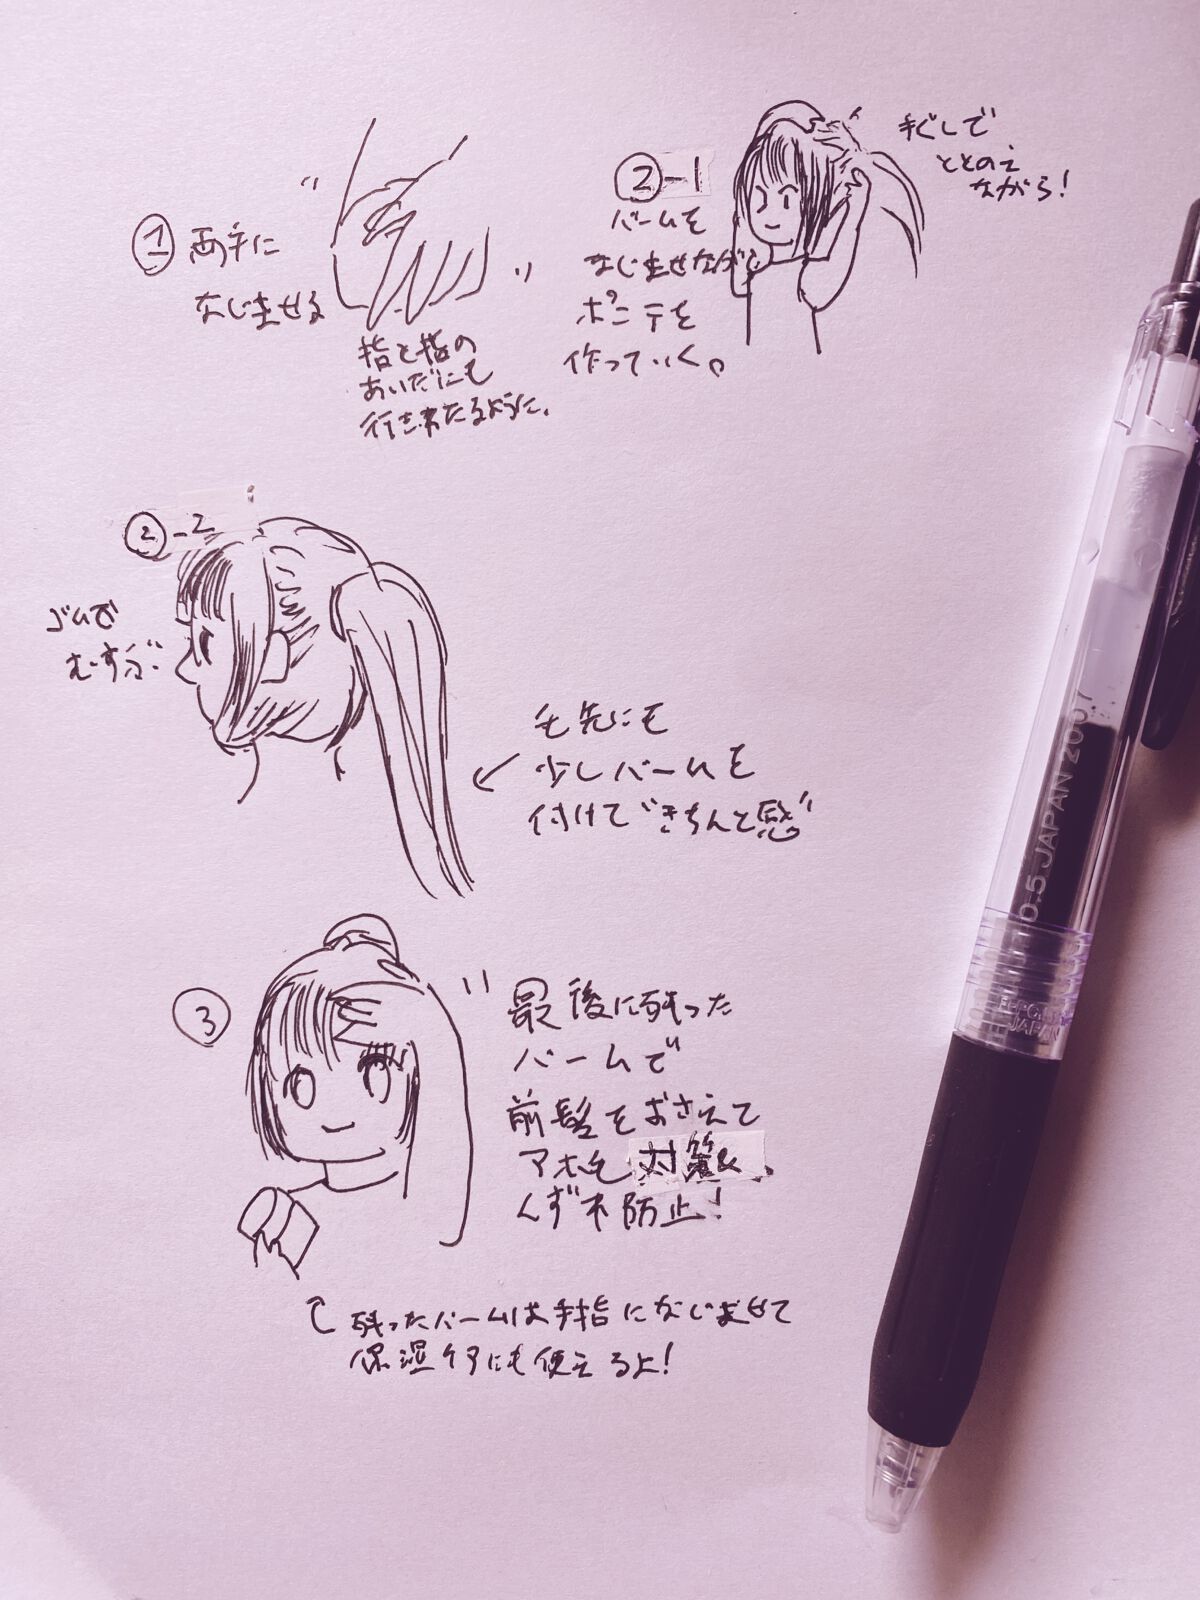 ① 両手に
なじませる
指と指の
あいだにも
行き来たるように。
②-1
バームを
なじませながら
ポニテを
作っていく。
手ぐしで
ととのえ
ながら!
②-2
ゴムで
むすぶ
毛先にも
少しバームを
付けて"きちんと感"
③
最後に残った
バームで
前髪をおさえて
アホ毛対策&
くずれ防止!
残ったバームは手指になじませて
保湿ケアにも使えるよ!
0.5 JAPAN 2007
JAPAN